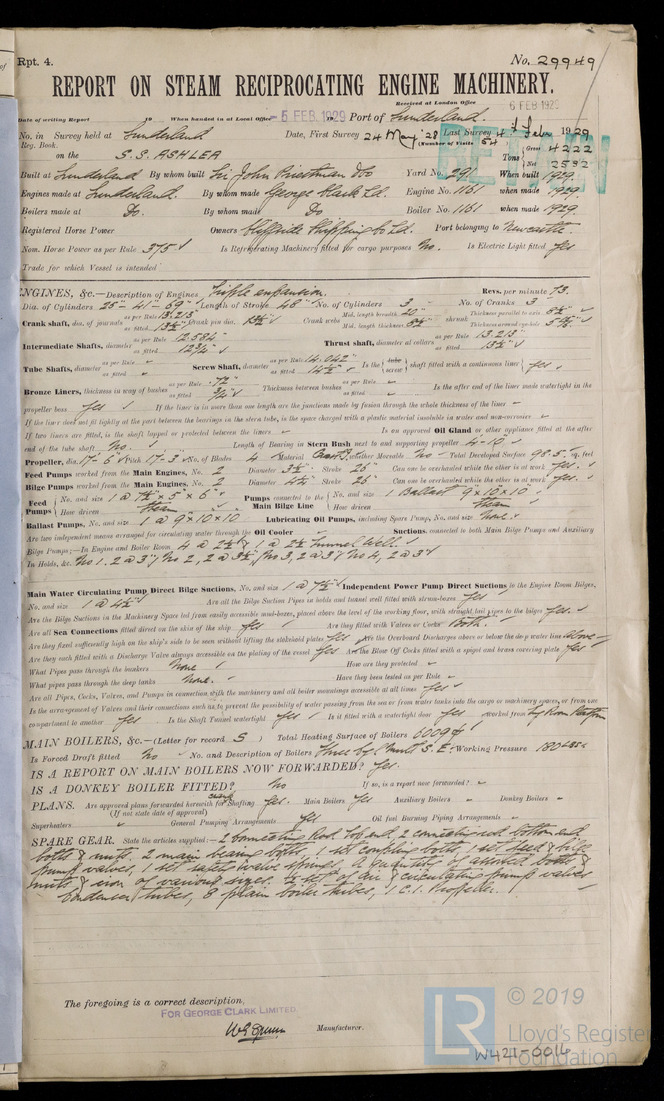 Rpt. 4. No. 29949
REPORT ON STEAM RECIPROCATING ENGINE MACHINERY.
Received at London Office 6 FEB 1929
Date of writing Report 19 When handed in at Local Office - 5 FEB. 1929 Port of Sunderland.
No. in Reg. Book. Survey held at Sunderland Date, First Survey 24 May '28 Last Survey 4th Feb 1929
(Number of Visits 54
on the S.S. ASHLEA Tons Gross 4222 Net 2592
Built at Sunderland By whom built Sir John Priestman & Co Yard No. 291 When built 1929.
Engines made at Sunderland. By whom made George Clark Ld. Engine No. 1161 when made 1929.
Boilers made at Do. By whom made Do Boiler No. 1161 when made 1929
Registered Horse Power Owners Cliffside Shipping Co Ld. Port belonging to Newcastle.
Nom. Horse Power as per Rule 375 Is Refrigerating Machinery fitted for cargo purposes No. Is Electric Light fitted Yes
Trade for which Vessel is intended
ENGINES, &c.—Description of Engines Triple expansion. Revs. per minute 73.
Dia. of Cylinders 25"-41"-69" Length of Stroke 48" No. of Cylinders 3 No. of Cranks 3
Crank shaft, dia. of journals as per Rule 13.213" as fitted 13½" Crank pin dia. 13½" Crank webs Mid. length breadth 20" Mid. length thickness shrunk Thickness parallel to axis Thickness around eyehole
Intermediate Shafts, diameter as per Rule 12.584" as fitted 12¾" Thrust shaft, diameter at collars as per Rule 13.213" as fitted 13½"
Tube Shafts, diameter as per Rule as fitted Screw Shaft, diameter as per Rule 14.042" as fitted 14½" Is the tube screw shaft fitted with a continuous liner Yes
Bronze Liners, thickness in way of bushes as per Rule .72" as fitted ¾" Thickness between bushes as per Rule as fitted Is the after end of the liner made watertight in the
propeller boss Yes If the liner is in more than one length are the junctions made by fusion through the whole thickness of the liner
If the liner does not fit tightly at the part between the bearings in the stern tube, is the space charged with a plastic material insoluble in water and non-corrosive
If two liners are fitted, is the shaft lapped or protected between the liners Is an approved Oil Gland or other appliance fitted at the after
end of the tube shaft No. Length of Bearing in Stern Bush next to and supporting propeller 4-10
Propeller, dia. 17-6 Pitch 17-3 No. of Blades 4 Material Cast I. whether Moveable No Total Developed Surface 98.5 sq. feet
Feed Pumps worked from the Main Engines, No. 2 Diameter 3½" Stroke 26" Can one be overhauled while the other is at work Yes.
Bilge Pumps worked from the Main Engines, No. 2 Diameter 4½" Stroke 26" Can one be overhauled while the other is at work Yes.
Feed Pumps No. and size 1 @ 7½" x 5" x 6" How driven Steam Pumps connected to the Main Bilge Line No. and size 1 Ballast 9"x10"x10" How driven Steam
Ballast Pumps, No. and size 1 @ 9"x10"x10 Lubricating Oil Pumps, including Spare Pump, No. and size None.
Are two independent means arranged for circulating water through the Oil Cooler Suctions, connected to both Main Bilge Pumps and Auxiliary
Bilge Pumps;—In Engine and Boiler Room 4 @ 2½" & 1 @ 2½ Tunnel Well.
In Holds, &c. No 1. 2 @ 3" No 2, 2 @ 3½" No 3, 2 @ 3" No 4, 2 @ 3"
Main Water Circulating Pump Direct Bilge Suctions, No. and size 1 @ 7½" Independent Power Pump Direct Suctions to the Engine Room Bilges,
No. and size 1 @ 4½" Are all the Bilge Suction Pipes in holds and tunnel well fitted with strum-boxes Yes
Are the Bilge Suctions in the Machinery Space led from easily accessible mud-boxes, placed above the level of the working floor, with straight tail pipes to the bilges Yes.
Are all Sea Connections fitted direct on the skin of the ship Yes Are they fitted with Valves or Cocks Both.
Are they fixed sufficiently high on the ship's side to be seen without lifting the stokehold plates Yes Are the Overboard Discharges above or below the deep water line Above
Are they each fitted with a Discharge Valve always accessible on the plating of the vessel Yes Are the Blow Off Cocks fitted with a spigot and brass covering plate Yes
What Pipes pass through the bunkers None How are they protected
What pipes pass through the deep tanks None. Have they been tested as per Rule
Are all Pipes, Cocks, Valves, and Pumps in connection with the machinery and all boiler mountings accessible at all times Yes
Is the arrangement of Valves and their connections such as to prevent the possibility of water passing from the sea or from water tanks into the cargo or machinery spaces, or from one
compartment to another Yes Is the Shaft Tunnel watertight Yes Is it fitted with a watertight door Yes worked from Eng Room Platform
MAIN BOILERS, &c.—(Letter for record S ) Total Heating Surface of Boilers 6009
Is Forced Draft fitted No No. and Description of Boilers Three Cyl. Mult S.E. Working Pressure 180 LBS
IS A REPORT ON MAIN BOILERS NOW FORWARDED? Yes.
IS A DONKEY BOILER FITTED? No If so, is a report now forwarded?
PLANS. Are approved plans forwarded herewith for Shafting Yes. Main Boilers Yes Auxiliary Boilers Donkey Boilers
(If not state date of approval)
Superheaters General Pumping Arrangements Yes Oil fuel Burning Piping Arrangements
SPARE GEAR. State the articles supplied:— 2 connecting Rod top end, 2 connecting rod bottom end
bolts & nuts. 2 main bearing bolts, 1 set coupling bolts, 1 set feed & bilge
pump valves, 1 set safety valve springs. A quantity of assorted bolts &
nuts & iron of various sizes. ½ set of air & circulating pump valves
Condenser tubes, 8 plain boiler tubes, 1 C.I. Propeller.
The foregoing is a correct description,
FOR GEORGE CLARK LIMITED.
Manufacturer.
© 2019
LR Lloyd's Register
Foundation
W421-0016